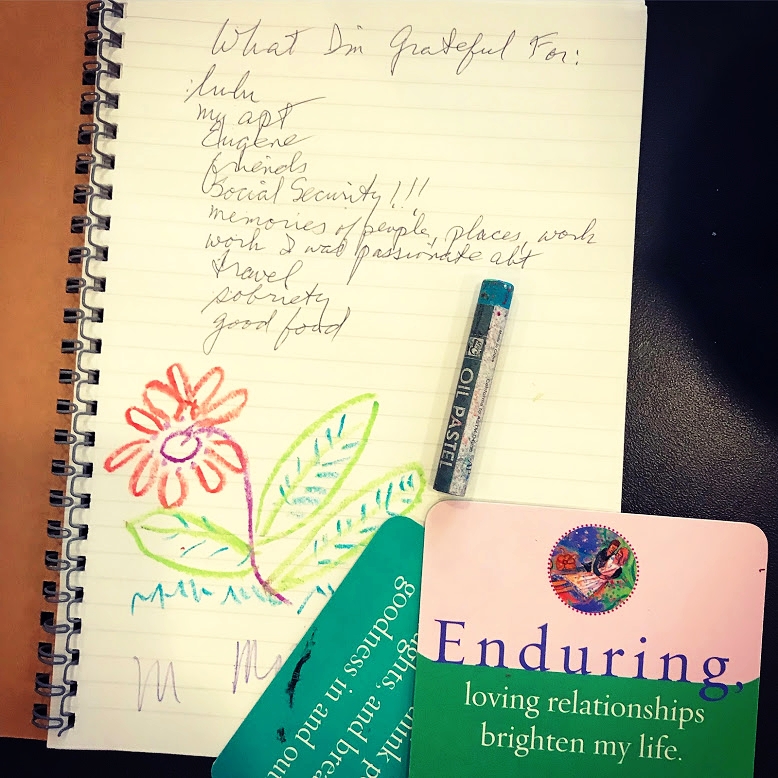 What I'm Grateful For:
Lulu
my apt
Eugene
friends
Social Security!!!
memories of people, places, work
work I was passionate abt
travel
sobriety
good food
OIL PASTEL
Enduring,
loving relationships
brighten my life.
think p
ghts, and brea
goodness in and out
M M